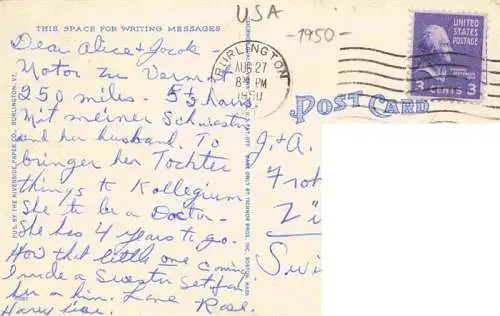 USA
-1950-
THIS SPACE FOR WRITING MESSAGES
Dear Alice & Jacob -
Motor zu Vermont
250 miles - 5½ hours.
Mit meiner Schwester
and her husband. To
bringer her Tochter
things to Kollegium
She to be a Doctor -
She has 4 years to go.
How that little one coming
I made a Swester set for
her or him. Love Rose.
Harry
BURLINGTON
AUG 27
8 30 PM
1950
VT
UNITED
STATES
POSTAGE
3 CENTS 3
POST CARD
J. & A.
PUB. BY THE RIVERSIDE PAPER CO., BURLINGTON, VT.
MADE ONLY BY TICHNOR BROS., INC., BOSTON, MASS.